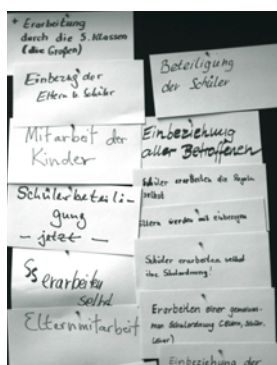 + Erarbeitung
durch die 5. Klassen
(die Großen)
Einbezug der
Eltern u. Schüler
Mitarbeit der
Kinder
Schülerbeteili-
gung
- jetzt -
Ss erarbeiten
selbst
Elternmitarbeit
Beteiligung
der Schüler
Einbeziehung
aller Betroffenen
Schüler erarbeiten die Regeln
selbst
Eltern werden mit einbezogen
Schüler erarbeiten selbst
ihre Schulordnung!
Erarbeiten einer gemeinsa-
men Schulordnung (Eltern, Schüler,
Lehrer)
Einbeziehung der